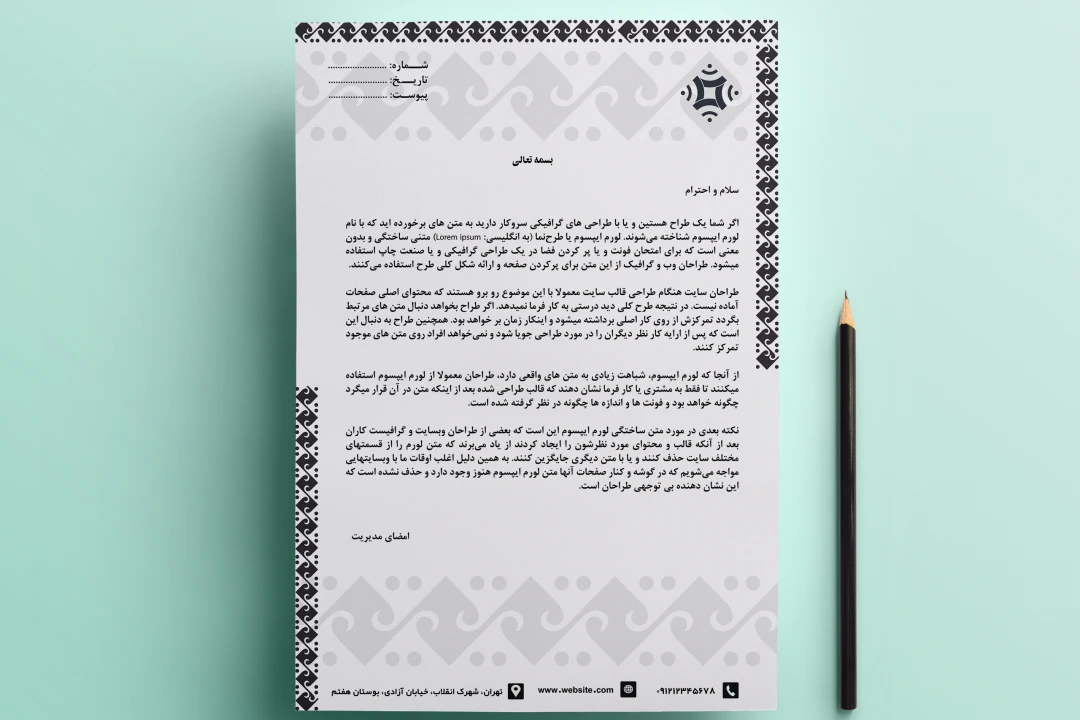 شـــماره: ........................
تاریـــخ: ........................
پیوســت: ........................
بسمه تعالی
سلام و احترام
اگر شما یک طراح هستین و یا با طراحی های گرافیکی سروکار دارید به متن های برخورده اید که با نام
لورم ایپسوم شناخته می‌شوند. لورم ایپسوم یا طرح‌نما (به انگلیسی: Lorem ipsum) متنی ساختگی و بدون
معنی است که برای امتحان فونت و یا پر کردن فضا در یک طراحی گرافیکی و یا صنعت چاپ استفاده
میشود. طراحان وب و گرافیک از این متن برای پرکردن صفحه و ارائه شکل کلی طرح استفاده می‌کنند.
طراحان سایت هنگام طراحی قالب سایت معمولا با این موضوع رو برو هستند که محتوای اصلی صفحات
آماده نیست. در نتیجه طرح کلی دید درستی به کار فرما نمیدهد. اگر طراح بخواهد دنبال متن های مرتبط
بگردد تمرکزش از روی کار اصلی برداشته میشود و اینکار زمان بر خواهد بود. همچنین طراح به دنبال این
است که پس از ارایه کار نظر دیگران را در مورد طراحی جویا شود و نمی‌خواهد افراد روی متن های موجود
تمرکز کنند.
از آنجا که لورم ایپسوم، شباهت زیادی به متن های واقعی دارد، طراحان معمولا از لورم ایپسوم استفاده
میکنند تا فقط به مشتری یا کار فرما نشان دهند که قالب طراحی شده بعد از اینکه متن در آن قرار میگرد
چگونه خواهد بود و فونت ها و اندازه ها چگونه در نظر گرفته شده است.
نکته بعدی در مورد متن ساختگی لورم ایپسوم این است که بعضی از طراحان وبسایت و گرافیست کاران
بعد از آنکه قالب و محتوای مورد نظرشون را ایجاد کردند از یاد می‌برند که متن لورم را از قسمتهای
مختلف سایت حذف کنند و یا با متن دیگری جایگزین کنند. به همین دلیل اغلب اوقات ما با وبسایتهایی
مواجه می‌شویم که در گوشه و کنار صفحات آنها متن لورم ایپسوم هنوز وجود دارد و حذف نشده است که
این نشان دهنده بی توجهی طراحان است.
امضای مدیریت
۰۹۱۲۱۲۳۴۵۶۷۸
www.website.com
تهران، شهرک انقلاب، خیابان آزادی، بوستان هفتم